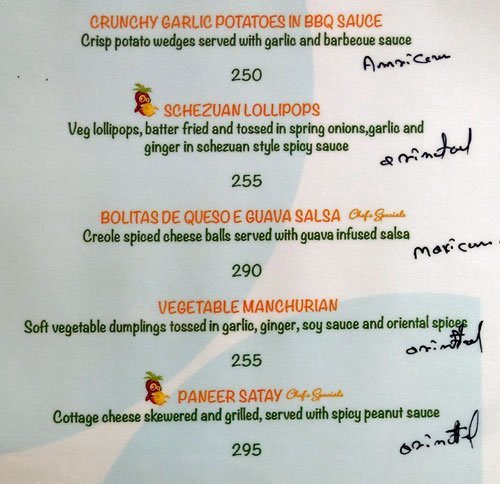 CRUNCHY GARLIC POTATOES IN BBQ SAUCE
Crisp potato wedges served with garlic and barbecue sauce
250
SCHEZUAN LOLLIPOPS
Veg lollipops, batter fried and tossed in spring onions,garlic and
ginger in schezuan style spicy sauce
255
BOLITAS DE QUESO E GUAVA SALSA Chefs Specials
Creole spiced cheese balls served with guava infused salsa
290
VEGETABLE MANCHURIAN
Soft vegetable dumplings tossed in garlic, ginger, soy sauce and oriental spices
255
PANEER SATAY Chefs Specials
Cottage cheese skewered and grilled, served with spicy peanut sauce
295